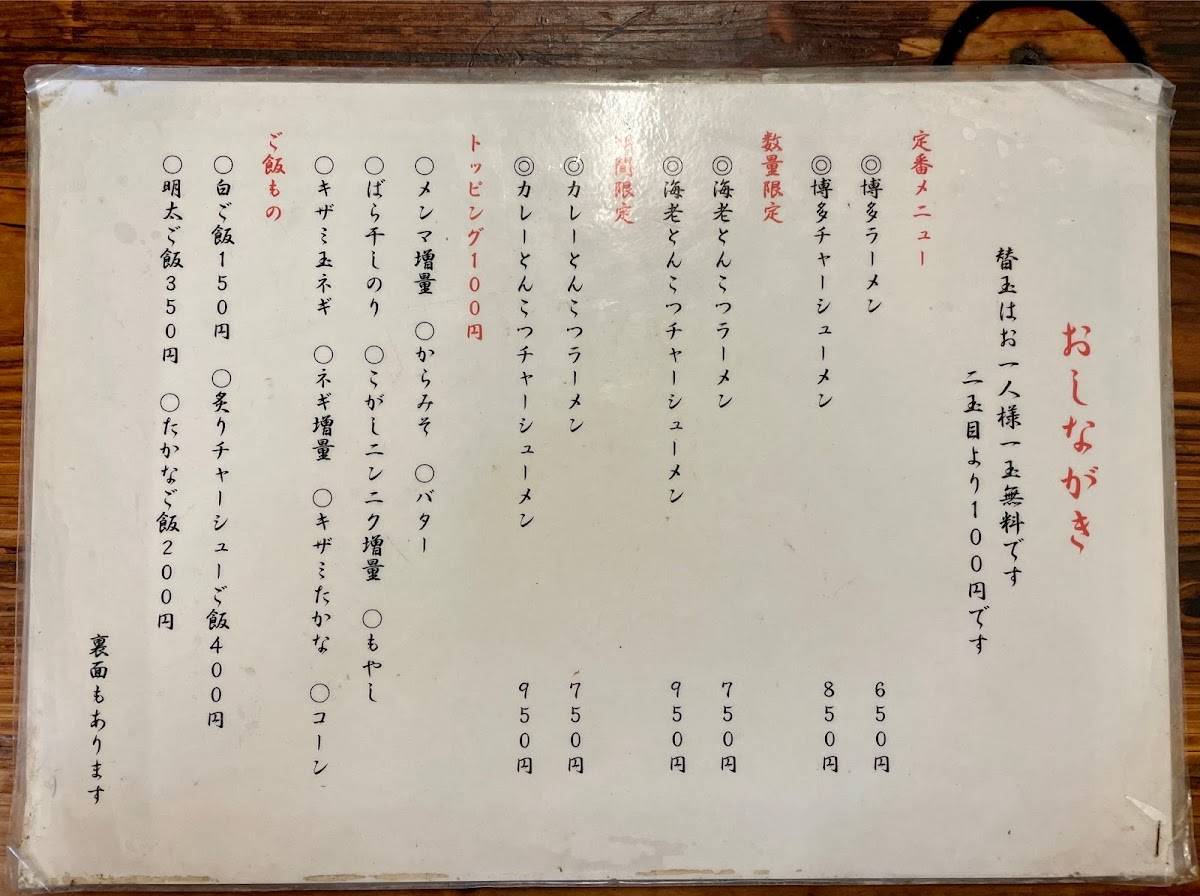 おしながき
替玉はお一人様一玉無料です
二玉目より100円です
定番メニュー
◎博多ラーメン 650円
◎博多チャーシューメン 850円
数量限定
◎海老とんこつラーメン 750円
◎海老とんこつチャーシューメン 950円
間限定
◎カレーとんこつラーメン 750円
◎カレーとんこつチャーシューメン 950円
トッピング100円
○メンマ増量 ○からみそ ○バター
○ばら干しのり ○こがしニンニク増量 ○もやし
○キザミ玉ネギ ○ネギ増量 ○キザミたかな ○コーン
ご飯もの
○白ご飯150円 ○炙りチャーシューご飯400円
○明太ご飯350円 ○たかなご飯200円
裏面もあります